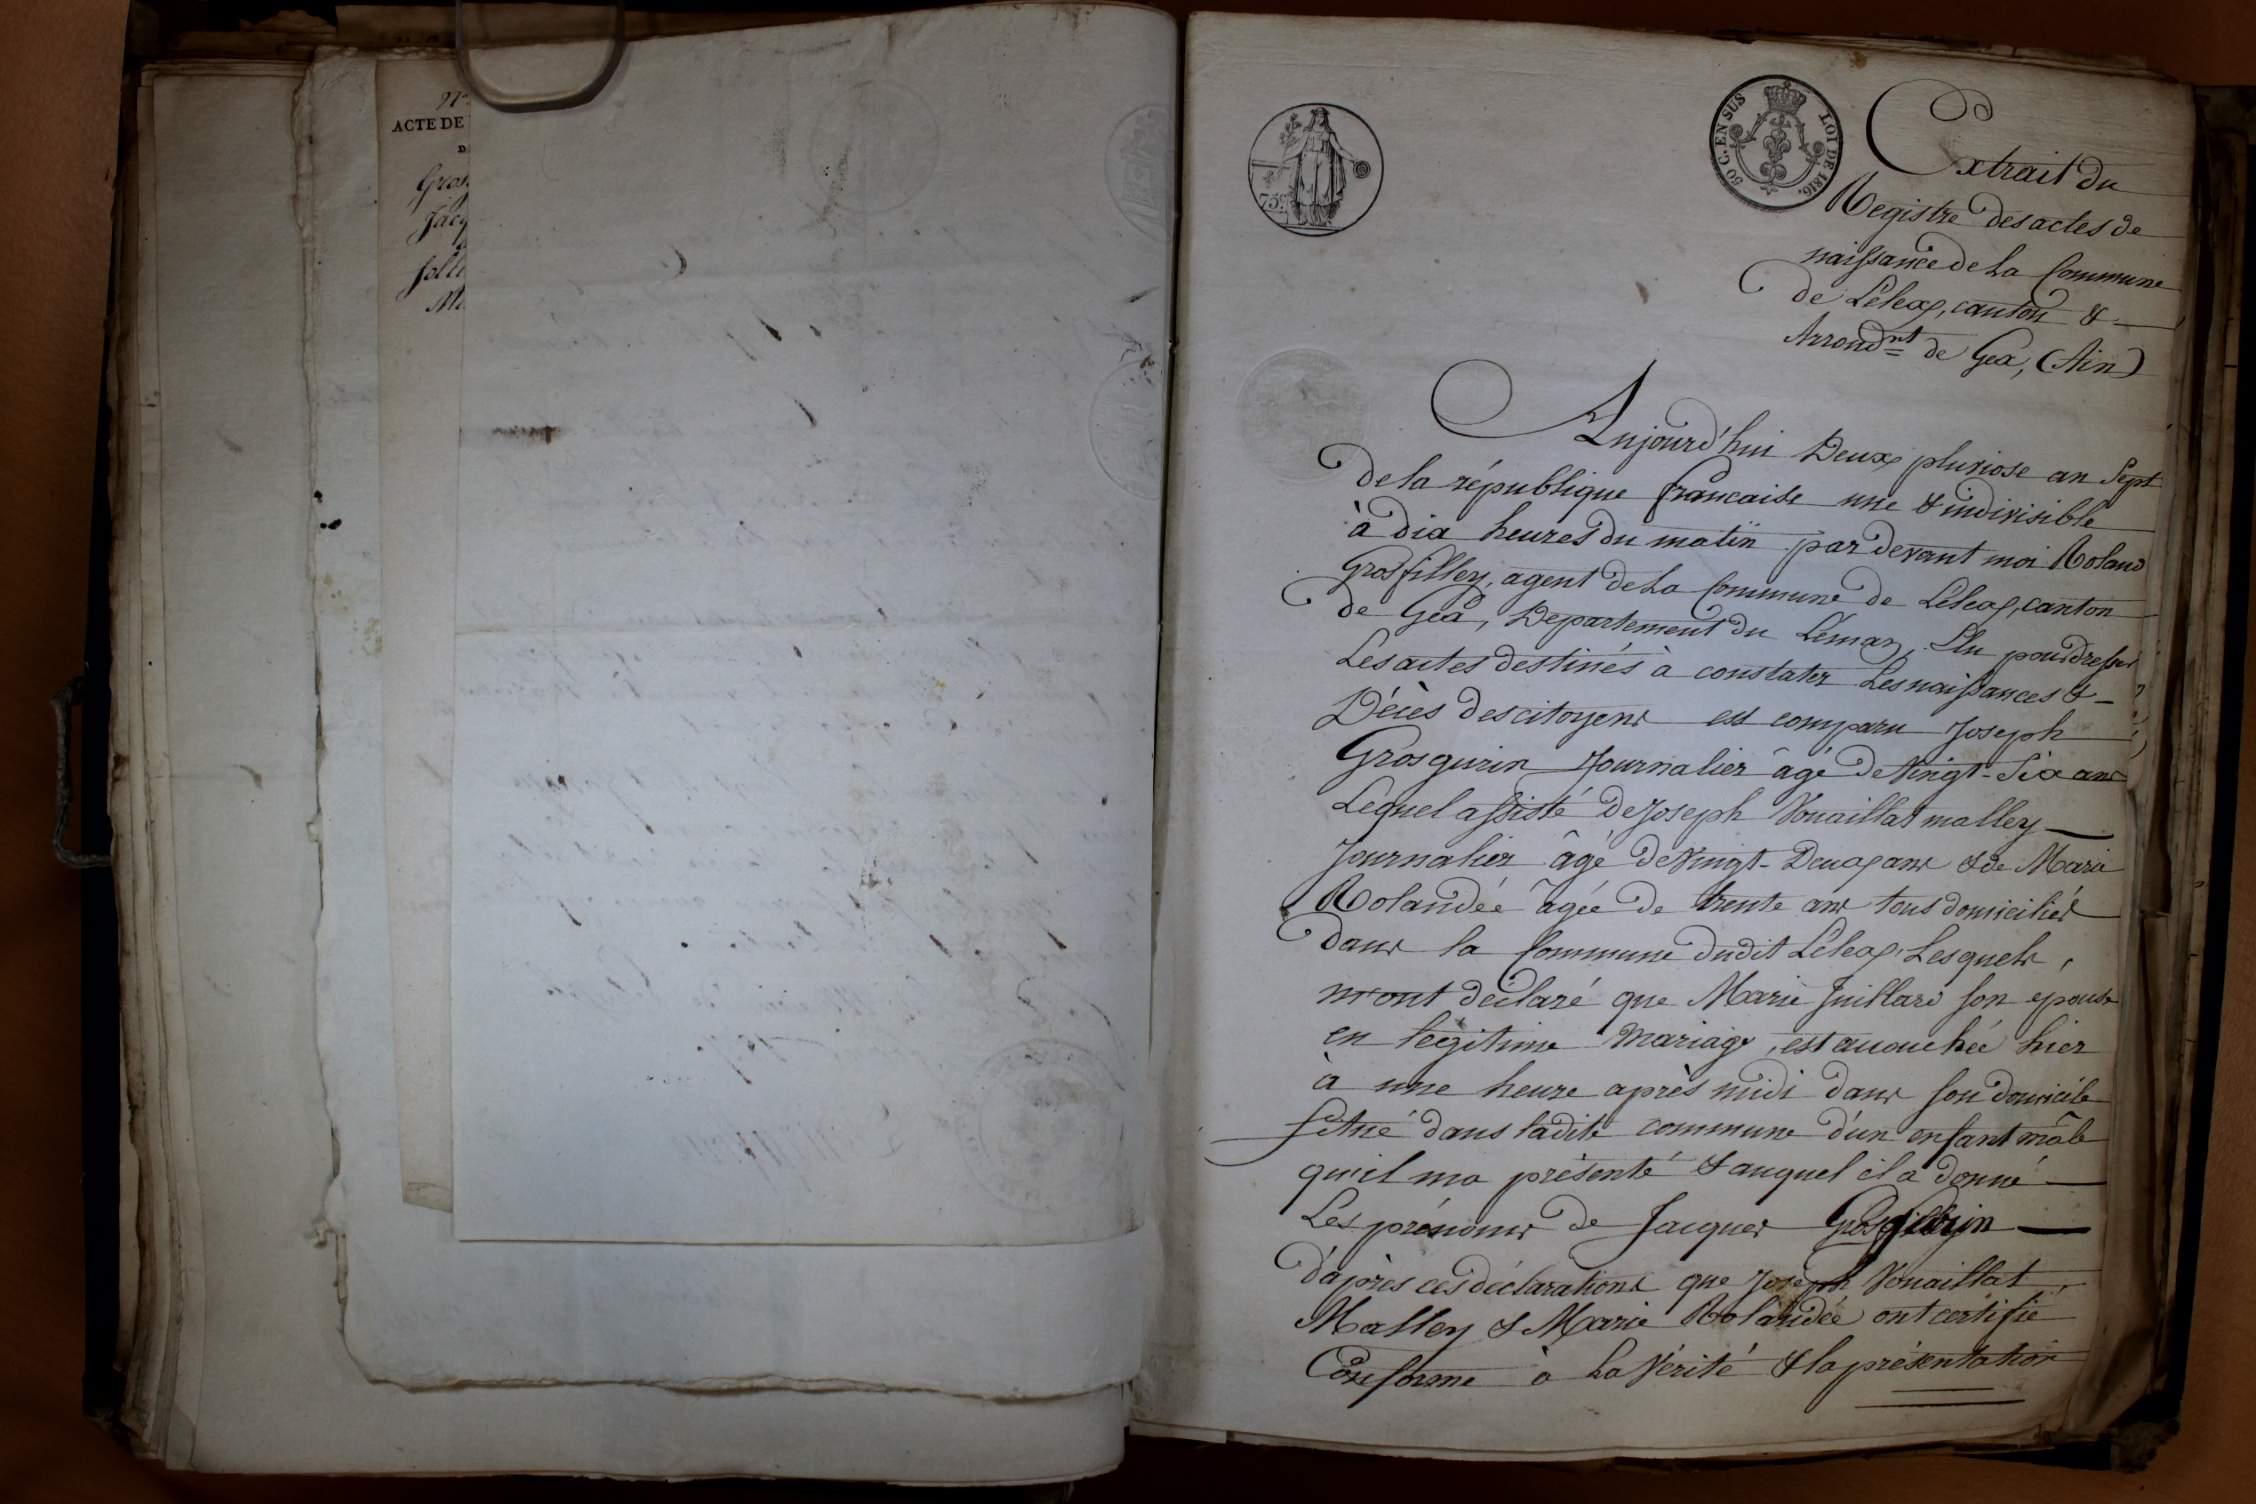 ACTE DE
Gros
Jacq
75c.
50 C. EN SUS
LOI DE 1816.
Extrait du
Registre des actes de
naissance de la Commune
de Lélex, canton &
Arrond.nt de Gex, (Ain)
Aujourd'hui Deux pluviose an Sept
de la république francaise une & indivisible
à dix heures du matin par devant moi Roland
Grosfilley, agent de la Commune de Lélex, canton
de Gex, Departement du Léman, Elu pour dresser
Les actes destinés à constater Les naissances &
Décès des citoyens est comparu Joseph
Grosgurin Journalier âgé de Vingt-Six ans
Lequel assisté de Joseph Vouaillat malley
Journalier âgé de Vingt-Deux ans & de Marie
Rolandée âgée de trente ans tous domiciliés
dans la Commune dudit Lélex, Lesquels,
m'ont déclaré que Marie Juillard son epouse
en légitime mariage, est accouchée hier
à une heure après midi dans son domicile
situé dans ladite commune d'un enfant mâle
qu'il ma présenté & auquel il a donné
Les prénoms de Jacques Grosgurin
d'après ces déclarations que Joseph Vouaillat
Malley & Marie Rolandée ont certifié
Conforme à La Vérité & la présentation